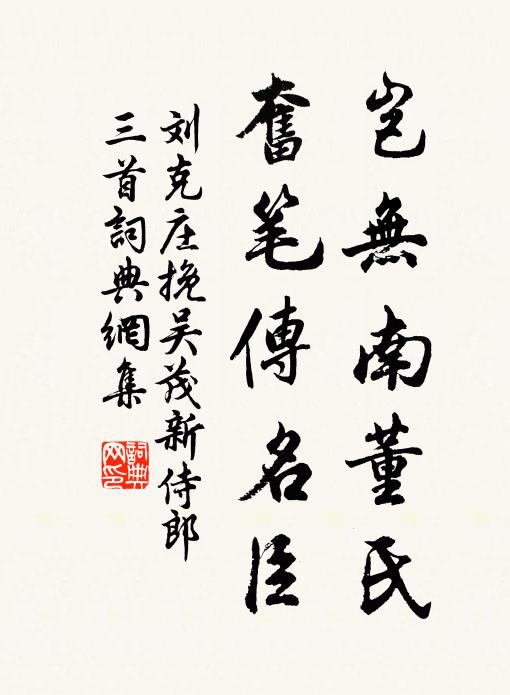 岂無南董氏
奮笔傳名臣
刘克庄挽吴茂新侍郎
三首詞典網集
詞典网印